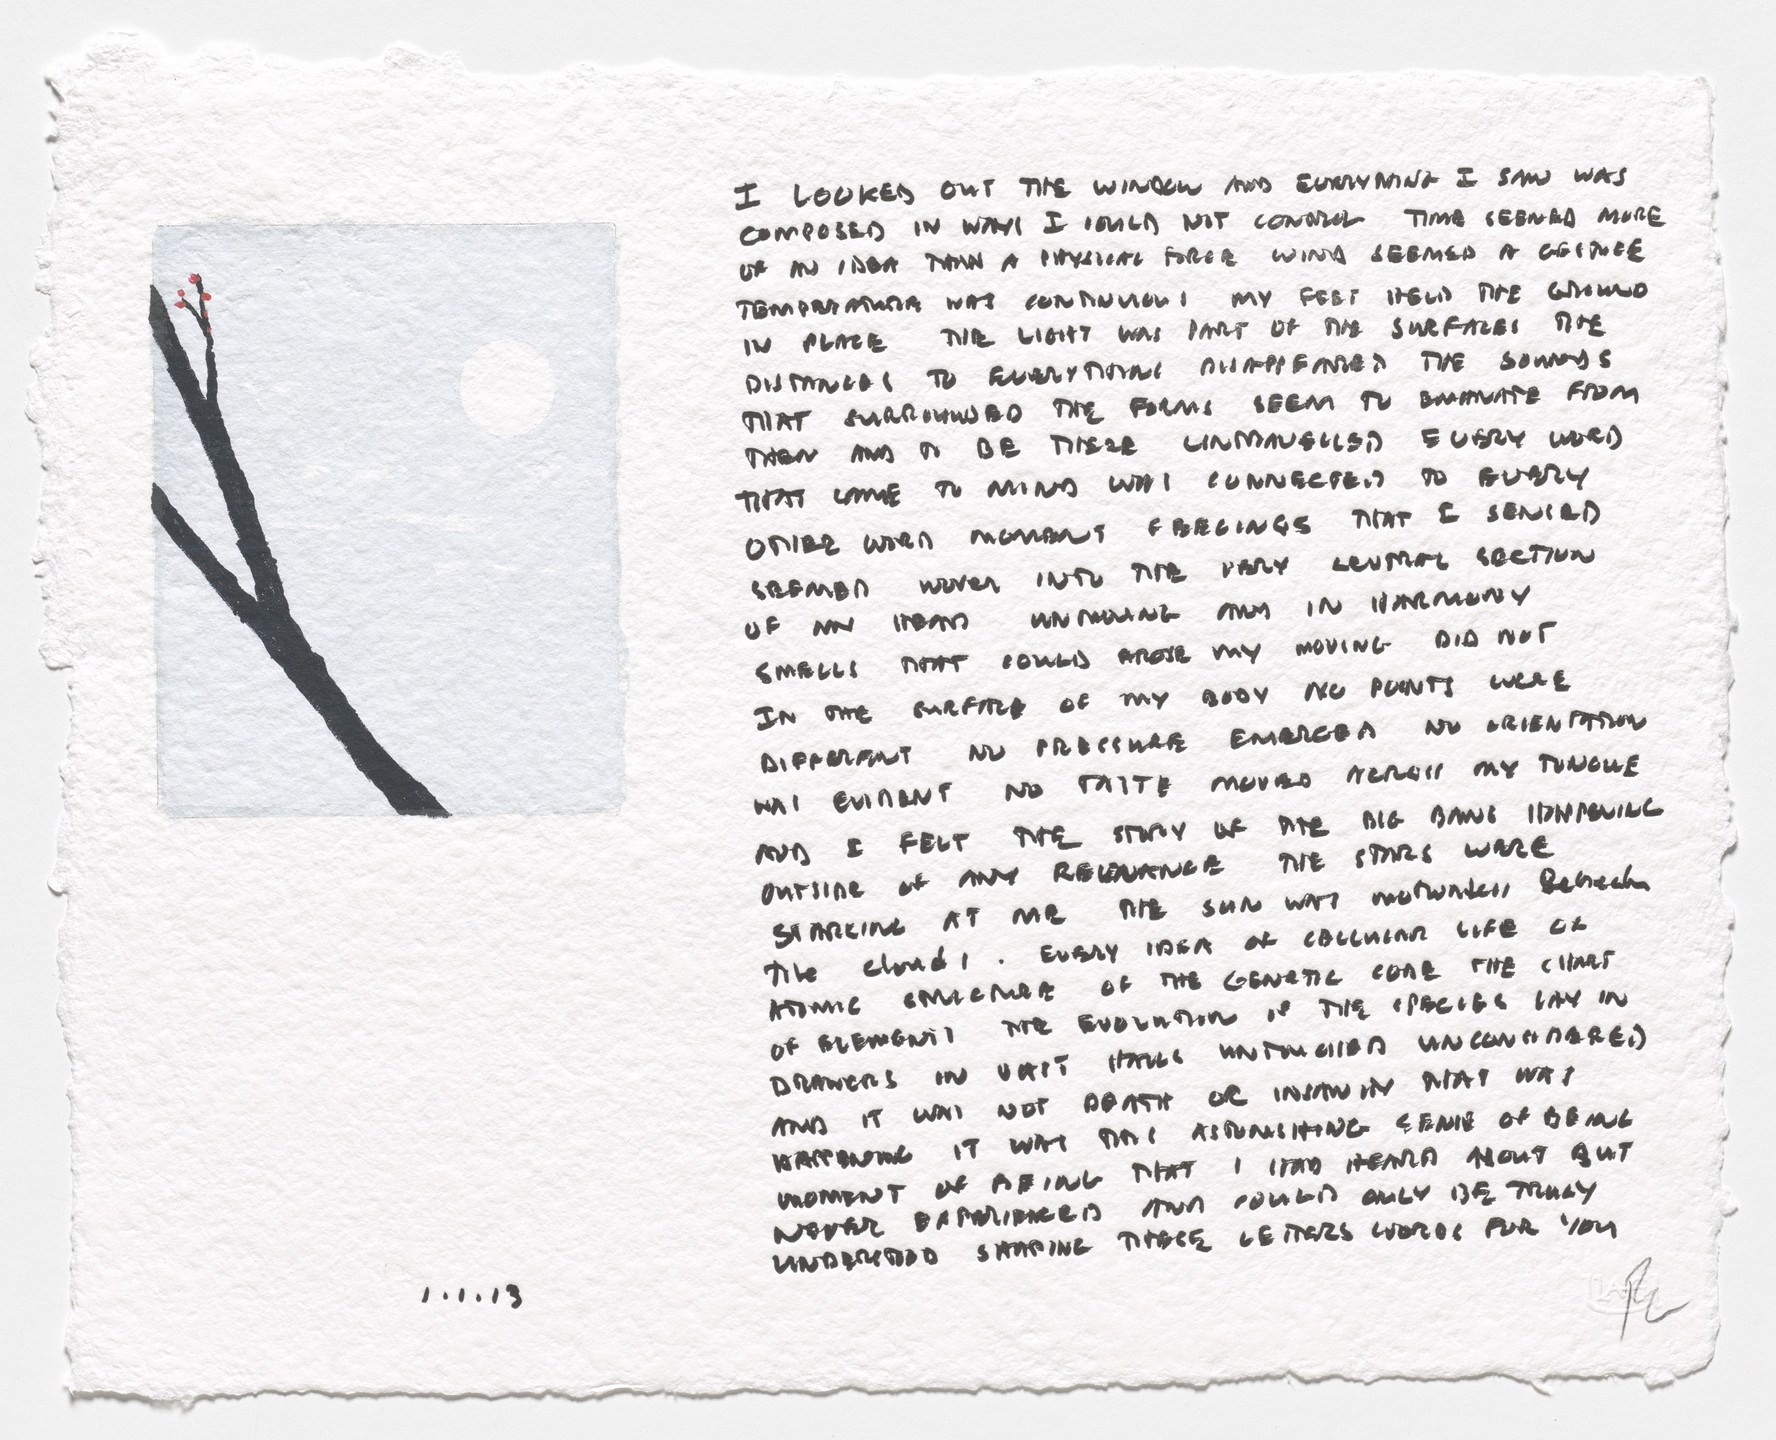 I LOOKED OUT THE WINDOW AND EVERYTHING I SAW WAS
COMPOSED IN WAYS I COULD NOT CONTROL TIME SEEMED MORE
OF AN IDEA THAN A PHYSICAL FORCE WIND SEEMED A GESTURE
TEMPERATURE WAS CONTINUOUS MY FEET HELD THE GROUND
IN PLACE THE LIGHT WAS PART OF THE SURFACES THE
DISTANCES TO EVERYTHING DISAPPEARED THE SOUNDS
THAT SURROUNDED THE FORMS SEEM TO EMANATE FROM
THEM AND TO BE THERE UNTRAVELLED EVERY WORD
THAT CAME TO MIND WAS CONNECTED TO EVERY
OTHER WORD MOMENT FEELINGS THAT I SENSED
SEEMED WOVEN INTO THE VERY CENTRAL SECTION
OF MY HEAD UNMOVING AND IN HARMONY
SMELLS THAT COULD AROSE MY MOVING DID NOT
IN THE SURFACE OF MY BODY NO POINTS WERE
DIFFERENT NO PRESSURE EMERGED NO ORIENTATION
WAS EVIDENT NO TASTE MOVED ACROSS MY TONGUE
AND I FELT THE STORY OF THE BIG BANG HAPPENING
OUTSIDE OF ANY RELEVANCE THE STARS WERE
STARING AT ME THE SUN WAS MOTIONLESS Between
THE clouds . EVERY IDEA OF CELLULAR LIFE OF
ATOMIC STRUCTURE OF THE GENETIC CODE THE CHART
OF ELEMENTS THE EVOLUTION OF THE SPECIES LAY IN
DRAWERS IN VAST HALLS UNTOUCHED UNCONSIDERED
AND IT WAS NOT DEATH OR INSANITY THAT WAS
HAPPENING IT WAS THIS ASTONISHING SENSE OF BEING
MOMENT OF BEING THAT I HAD HEARD ABOUT BUT
NEVER EXPERIENCED AND COULD ONLY BE TRULY
UNDERSTOOD SHAPING THESE LETTERS WORDS FOR YOU
1.1.13